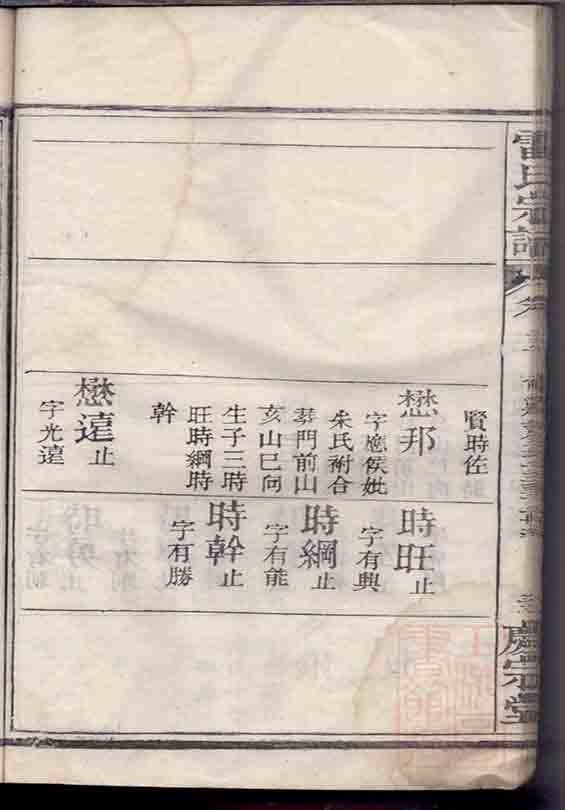 雷氏宗譜
賢時佐
懋邦
字應侯妣
朱氏祔合
琴門前山
亥山巳向
生子三時
旺時綱時
幹
懋遠止
字光遠
時旺止
字有興
時綱止
字有能
時幹止
字有勝
慶宗堂